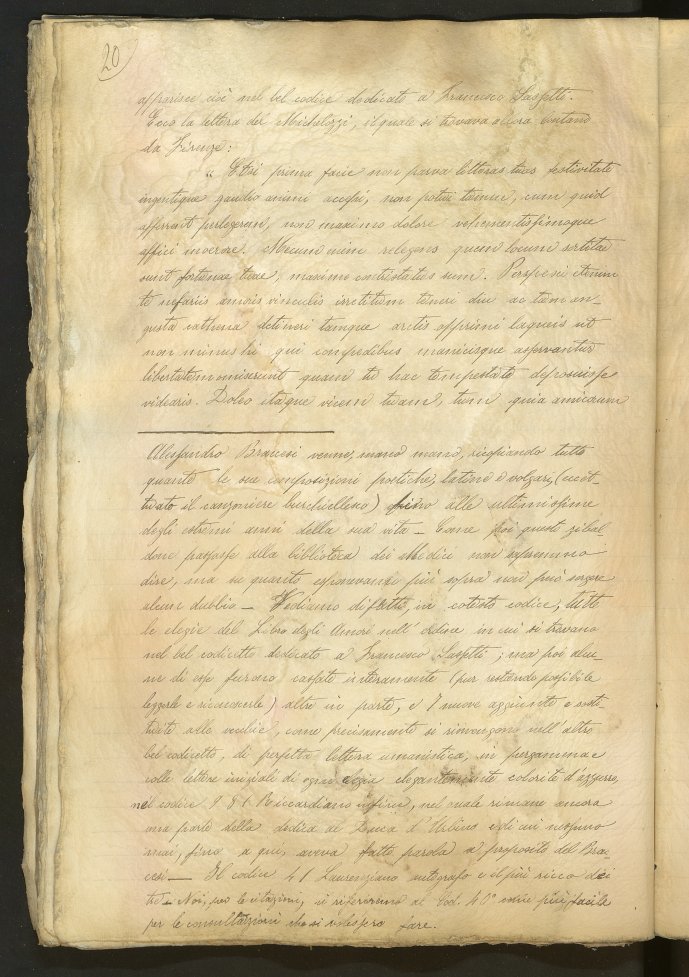 20
apparisce cioè nel bel codice dedicato a Francesco Sassetti.
Ecco la lettera del Michelozzi, il quale si trovava allora lontano
da Firenze:
" Etsi prima facie non parva letteras tuas festivitate
ingentique gaudio animi accepi, non potui tamen, cum quid
afferrent perlegerem, non maximo dolore vehementissimoque
affici moerore. Mecum enim relegens quem locum sortitae
sunt fortunae tuae, maxime contristatus sum. Perspexi etenim
te nefariis amoris vinculis irretitum teneri diu ac tam an-
gusta cathena detineri tamque arctis opprimi laqueis ut
non minus hi qui compedibus manicisque asservantur
libertatem amiserint quam tu hac tempestate deposcisse
videaris. Doleo itaque vicem tuam, tum quia amicorum
Alessandro Braccesi venne, mano mano, ricopiando tutte
quante le sue composizioni poetiche, latine e volgari, (eccet-
tuato il canzoniere burchiellesco) fino alle ultimissime
degli estremi anni della sua vita - Come poi questo zibal
done passasse alla biblioteca dei Medici non sapremmo
dire, ma su quanto esponevamo più sopra non può sorgere
alcun dubbio - Vediamo difatti, in cotesto codice, tutte
le elegie del Libro degli Amori nell' ordine in cui si trovano
nel bel codicetto dedicato a Francesco Sassetti; ma poi alcu-
ne di esse furono cassate interamente (pur restando possibile
leggerle e riconoscerle) altre in parte, e 7 nuove aggiunte e sosti-
tuite alle vecchie, come precisamente si rinvengono nell' altro
bel codicetto, di perfetta lettera umanistica, in pergamena e
colle lettere iniziali di ogni elegia elegantemente colorite d'azzurro,
nel codice 981 Riccardiano infine, nel quale rimane ancora
una parte della dedica al Duca d'Urbino e di cui nessuno
mai, fino a qui, aveva fatto parola a proposito del Brac-
cesi - Il codice 41 Laurenziano autografo è il più ricco dei
tre - Noi, per le citazioni, ci riferiremo al Cod. 40° come più facile
per le consultazioni che si volessero fare.